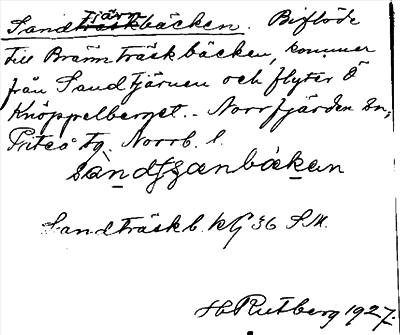 Sandträskbäcken. Biflöde
tjärn
till Brännträskbäcken, kommer
från Sandtjärnen och flyter Ö
Knöppelberget. Norrfjärden sn,
Piteå tg. Norrb. l.
Sandträskb. kG 36 S.M.
H Rutberg 1927.